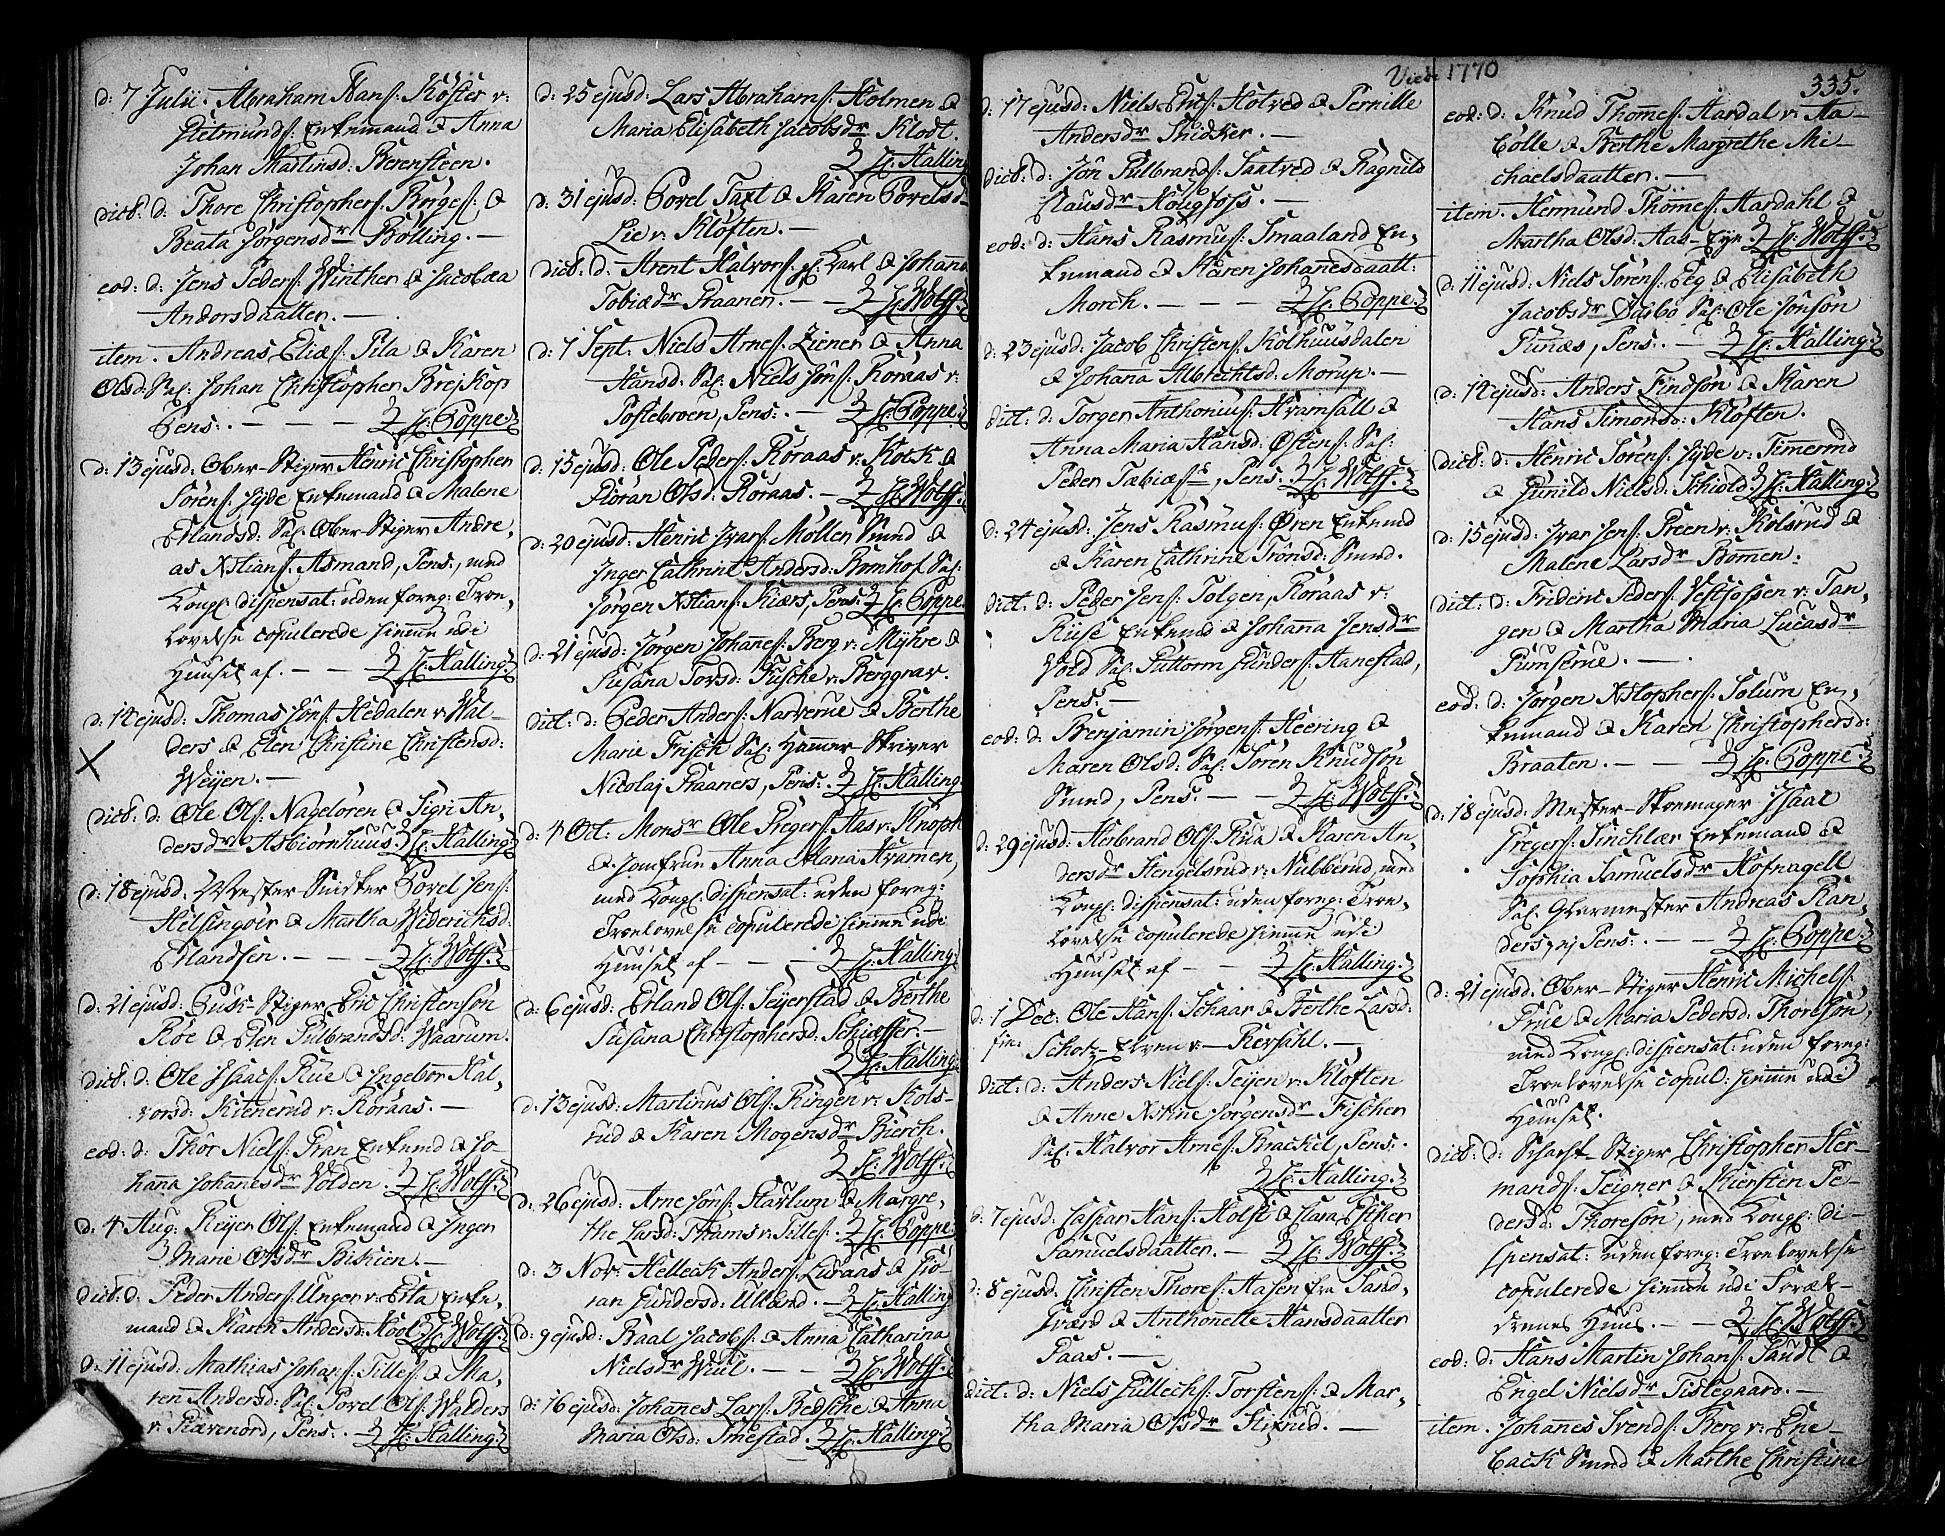 d: 7 Julii. Abraham Hans: Köster v:
Enkemand & Anna
Johan Martinsd: Berensteen.
dict: d: Thore Christophers: Börges: &
Beata Jörgensdr Bölling. —
eod: d: Jens Peders: Winther & Jacobæa
Andersdaatter. —
item. Andreas Eliæs: Pila & Karen
Olsd: Sal: Johan Christopher Brejkop
Pens: . — — — H: Poppe.
d: 13 ejusd: Ober-Stiger Henric Christopher
Sörens: Hyde Enkemand & Malene
Erlandsd: Sal: Ober-Stiger Andre,
as Xtians: Asmand, Pens:, med
Kongl: dispensat: uden foreg: Troe,
lovelse copulerede hiemme udi
Huuset af. — — H: Halling.
d: 14 ejusd: Thomas Jöns: Hedalen v: Wal-
ders & Elen Christine Christensd:
Weyen. —
dict: d: Ole Ols: Nagelören & Sigri An-
dersdr Asbiörnhuus H: Halling
d: 18 ejusd. Mester Snidker Povel Jens:
Helsingöer & Martha Widerichsd:
Erlandsen. — — — H: Wolff.
d: 21 ejusd: Puk-Stiger Eric Christensön
Röe & Elen Gulbrandsd: Waarum.
dict: d: Ole Isaacs: Rue & Ingebor Hal,
vorsd: Kitnerud v: Roraas. —
eod: d: Thor Niels: Gran Enkemd & Jo-
hana Johanesdr Volden. H: Wolff.
d: 4 Aug: Reyer Ols: Enkemand & Inger
Marie Olsdr Bitvien. —
dict: d: Peder Anders: Unger v: Eeta Enke,
mand & Karen Andersd: Kool H: Wolff.
d: 11 ejusd: Mathias Johans: Tilles: & Ma,
ren Andersd: Sal: Povel Ols: Walders
v: Rævenord, Pens: . H: Halling.
d: 25 ejusd: Lars Abrahams: Holmen &
Maria Elisabeth Jacobsdr Klodt.
H: Halling
d: 31 ejusd: Povel Taxt & Karen Povelsd
Lie v: Klöften. —
dict: d: Arent Halvors: Karl & Johana
Tobiædr Graaner. — H: Wolff.
d: 7 Sept: Niels Arnes: Ziener & Anna
Hansd: Sal: Niels Jöns: Roraas v:
Posebroen, Pens: . — H: Poppe.
d: 15 ejusd: Ole Peders: Röraas v: Kock &
Göran Olsd: Roraas. — H: Wolff.
d: 20 ejusd: Henric Ivars: Möller Smed &
Inger Cathrine Andersd: Bomhof Sal:
Jörgen Xtians: Kiærs, Pens: H: Poppe
d: 21 ejusd: Jörgen Johanes: Berg v: Myhre &
Susana Torsd: Fusche v: Berggrav.
dict: d: Peder Anders: Narverue & Berthe
Marie Frisch Sal: Hammer Skriver
Nicolaj Graaners, Pens: . H: Halling
d: 4 Oct: Monsr Ole Gregers: Aas v: Knoph
& Jomfrue Anna Maria Kramer,
med Kongl: dispensat: uden foreg:
Troelovelse copulerede hiemme udi
Huuset af — — . H: Halling.
d: 6 ejusd: Erland Ols: Seyerstad & Berthe
Susana Christophersd: Schiæffer. —
H: Halling.
d: 13 ejusd: Martinus Ols: Ringen v: Kols-
rud & Karen Mogensdr Bierch.
H: Wolff.
d: 26 ejusd: Arne Jöns: Skarlum & Margre,
the Larsd: Thrams v: Tilles: . H: Poppe.
d: 3 Nov: Helleck Anders: Luraas & Giö
ran Gundersd: Ulland. — H: Halling
d: 9 ejusd: Baal Jacobs: & Anna Catharina
Nielsdr Wiul. — — H: Wolff.
d: 16 ejusd: Johanes Lars: Bedsche & Anna
Maria Olsd: Smestad. H: Halling.
Viede 1770
335.
d: 17 ejusd: Niels Hotved & Pernille
Andersdr Snidker. —
dict: d: Jön Gulbrands: Saxtved & Ragnild
Clausdr Hougfoss. —
eod: d: Hans Rasmus: Smaaland En,
kemand & Karen Johanesdaatt:
Morch. — — — H: Poppe.
d: 23 ejusd: Jacob Christens: Kolhuusdalen
& Johana Albrechtsd: Morup. —
dict: d: Torger Anthonius: Kramfall &
Anna Maria Hansd: Östens: Sal:
Peder Tobiæs:, Pens: H: Wolff.
d: 24 ejusd: Jens Rasmus: Ören Enkemd
& Karen Cathrine Trönsd: Smed.
dict: d: Peder Jens: Tolgen, Roraas v:
Riise Enkemd & Johana Jensdr
Vold Sal: Guttorm Gunders: Hanestad,
Pens: —
eod: d: Benjamin Jörgens: Heering &
Maren Olsd: Sal: Sören Knudsön
Smed, Pens: — — H: Wolff.
d: 29 ejusd: Herbrand Ols: Rua & Karen An,
dersdr Hengelsrud v: Nubberud, med
Kongl: dispensat: uden foreg: Troe,
lovelse copulerede hiemme udi
Huuset af — — H: Halling.
d: 1 Dec: Ole Hans: Schaar & Berthe Larsd:
Schotz- Elven v- Fiersahl. —
dict: d: Anders Niels: Teyen v: Klöften
& Anne Xstine Jörgensdr Fischer
Sal: Halvor Arnes: Brackel, Pens: .
H: Halling.
d: 7 ejusd: Caspar Hans: Holst & Clara Fisher
Samuelsdaatter. — H: Wolff.
d: 8 ejusd: Christen Thores: Aasen fra Sand,
sværd & Anthonette Hansdaatter
Paas. —
dict: d: Niels Gullechs: Torstens: & Mar,
tha Maria Olsdr Stixrud. —
eod: d: Knud Thomes: Hardal v: Aa-
bölle & Berthe Margrethe Mi-
chaelsdaatter. —
item. Hermund Thömes: Hardahl &
Martha Olsd: Aas-Eye H: Wolff.
d: 11 ejusd: Niels Sörens: Eeg & Elisabeth
Jacobsdr Dasbö Sal: Ole Jonsön
Funæs, Pens: . — H: Halling.
d: 14 ejusd: Anders Findsön & Karen
Hans Simonsd: Klöften.
dict: d: Henric Sörens: Hyde v: Timermd
& Gunild Nielsd: Schiold H: Halling.
d: 15 ejusd: Ivar Jens: Green v: Kolsrud &
Malene Larsdr Bommen.
dict: d: Frideric Peders: Vestfossen v: Tan,
gen & Martha Maria Lucasdr
Gumserue. —
eod: d: Jörgen Xstophers: Solum En,
kemand & Karen Christophersd:
Braaten. — — H: Poppe.
d: 18 ejusd: Mester-Skoemager Isaac
Gregers: Sinchlær Enkemand &
Sophia Samuelsdr Hofnagell
Sal: Glarmester Andreas Ran,
ders, ej Pens: . — — H: Poppe.
d: 21 ejusd: Ober-Stiger Henric Michels:
Grue & Maria Pedersd: Thoresön,
med Kongl: dispensat: uden foreg:
Troelovelse copul: hiemme udi
Huuset.
dict: d: Scharf-Stiger Christopher Her-
mands: Teigner & Kiersten Pe-
dersd: Thoresön, med Kongl: di-
spensat: uden foreg: Troelovelse
copulerede hiemme udi Foræl-
drenes Huus. — — H: Wolff.
eod: d: Hans Martin Johans: Sandt &
Engel Nielsdr Tislegaard. —
item. Johanes Svends: Berg v: Ene-
back Smed & Marthe Christine